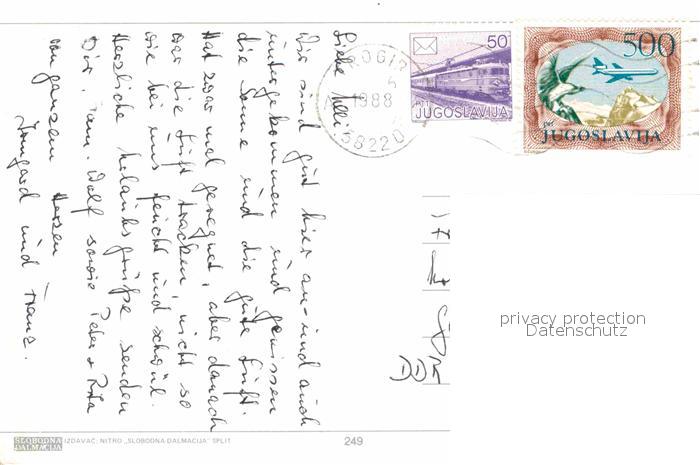 Liebe Nelli
Wir sind gut hier an- und auch
untergekommen und geniessen
die Sonne und die gute Luft.
Hat zwar mal geregnet, aber danach
war die Luft trocken, nicht so
wie bei uns feucht und schwül.
Herzliche Urlaubsgrüße senden
Dir, Fam. Wolf sowie Peter + Rita
von ganzem Herzen
Irmgard und Franz.
TROGIR
1988
58220
50
PTT
JUGOSLAVIJA
500
PTT
JUGOSLAVIJA
privacy protection
Datenschutz
SLOBODNA DALMACIJA IZDAVAČ: NITRO „SLOBODNA DALMACIJA" SPLIT
249